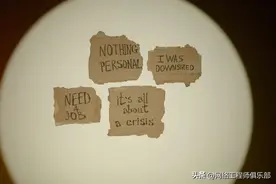 NOTHING
PERSONAL
I WAS
DOWNSIZED
NEED
A
JOB
it's all
about
a crisis
头条 @网络工程师俱乐部